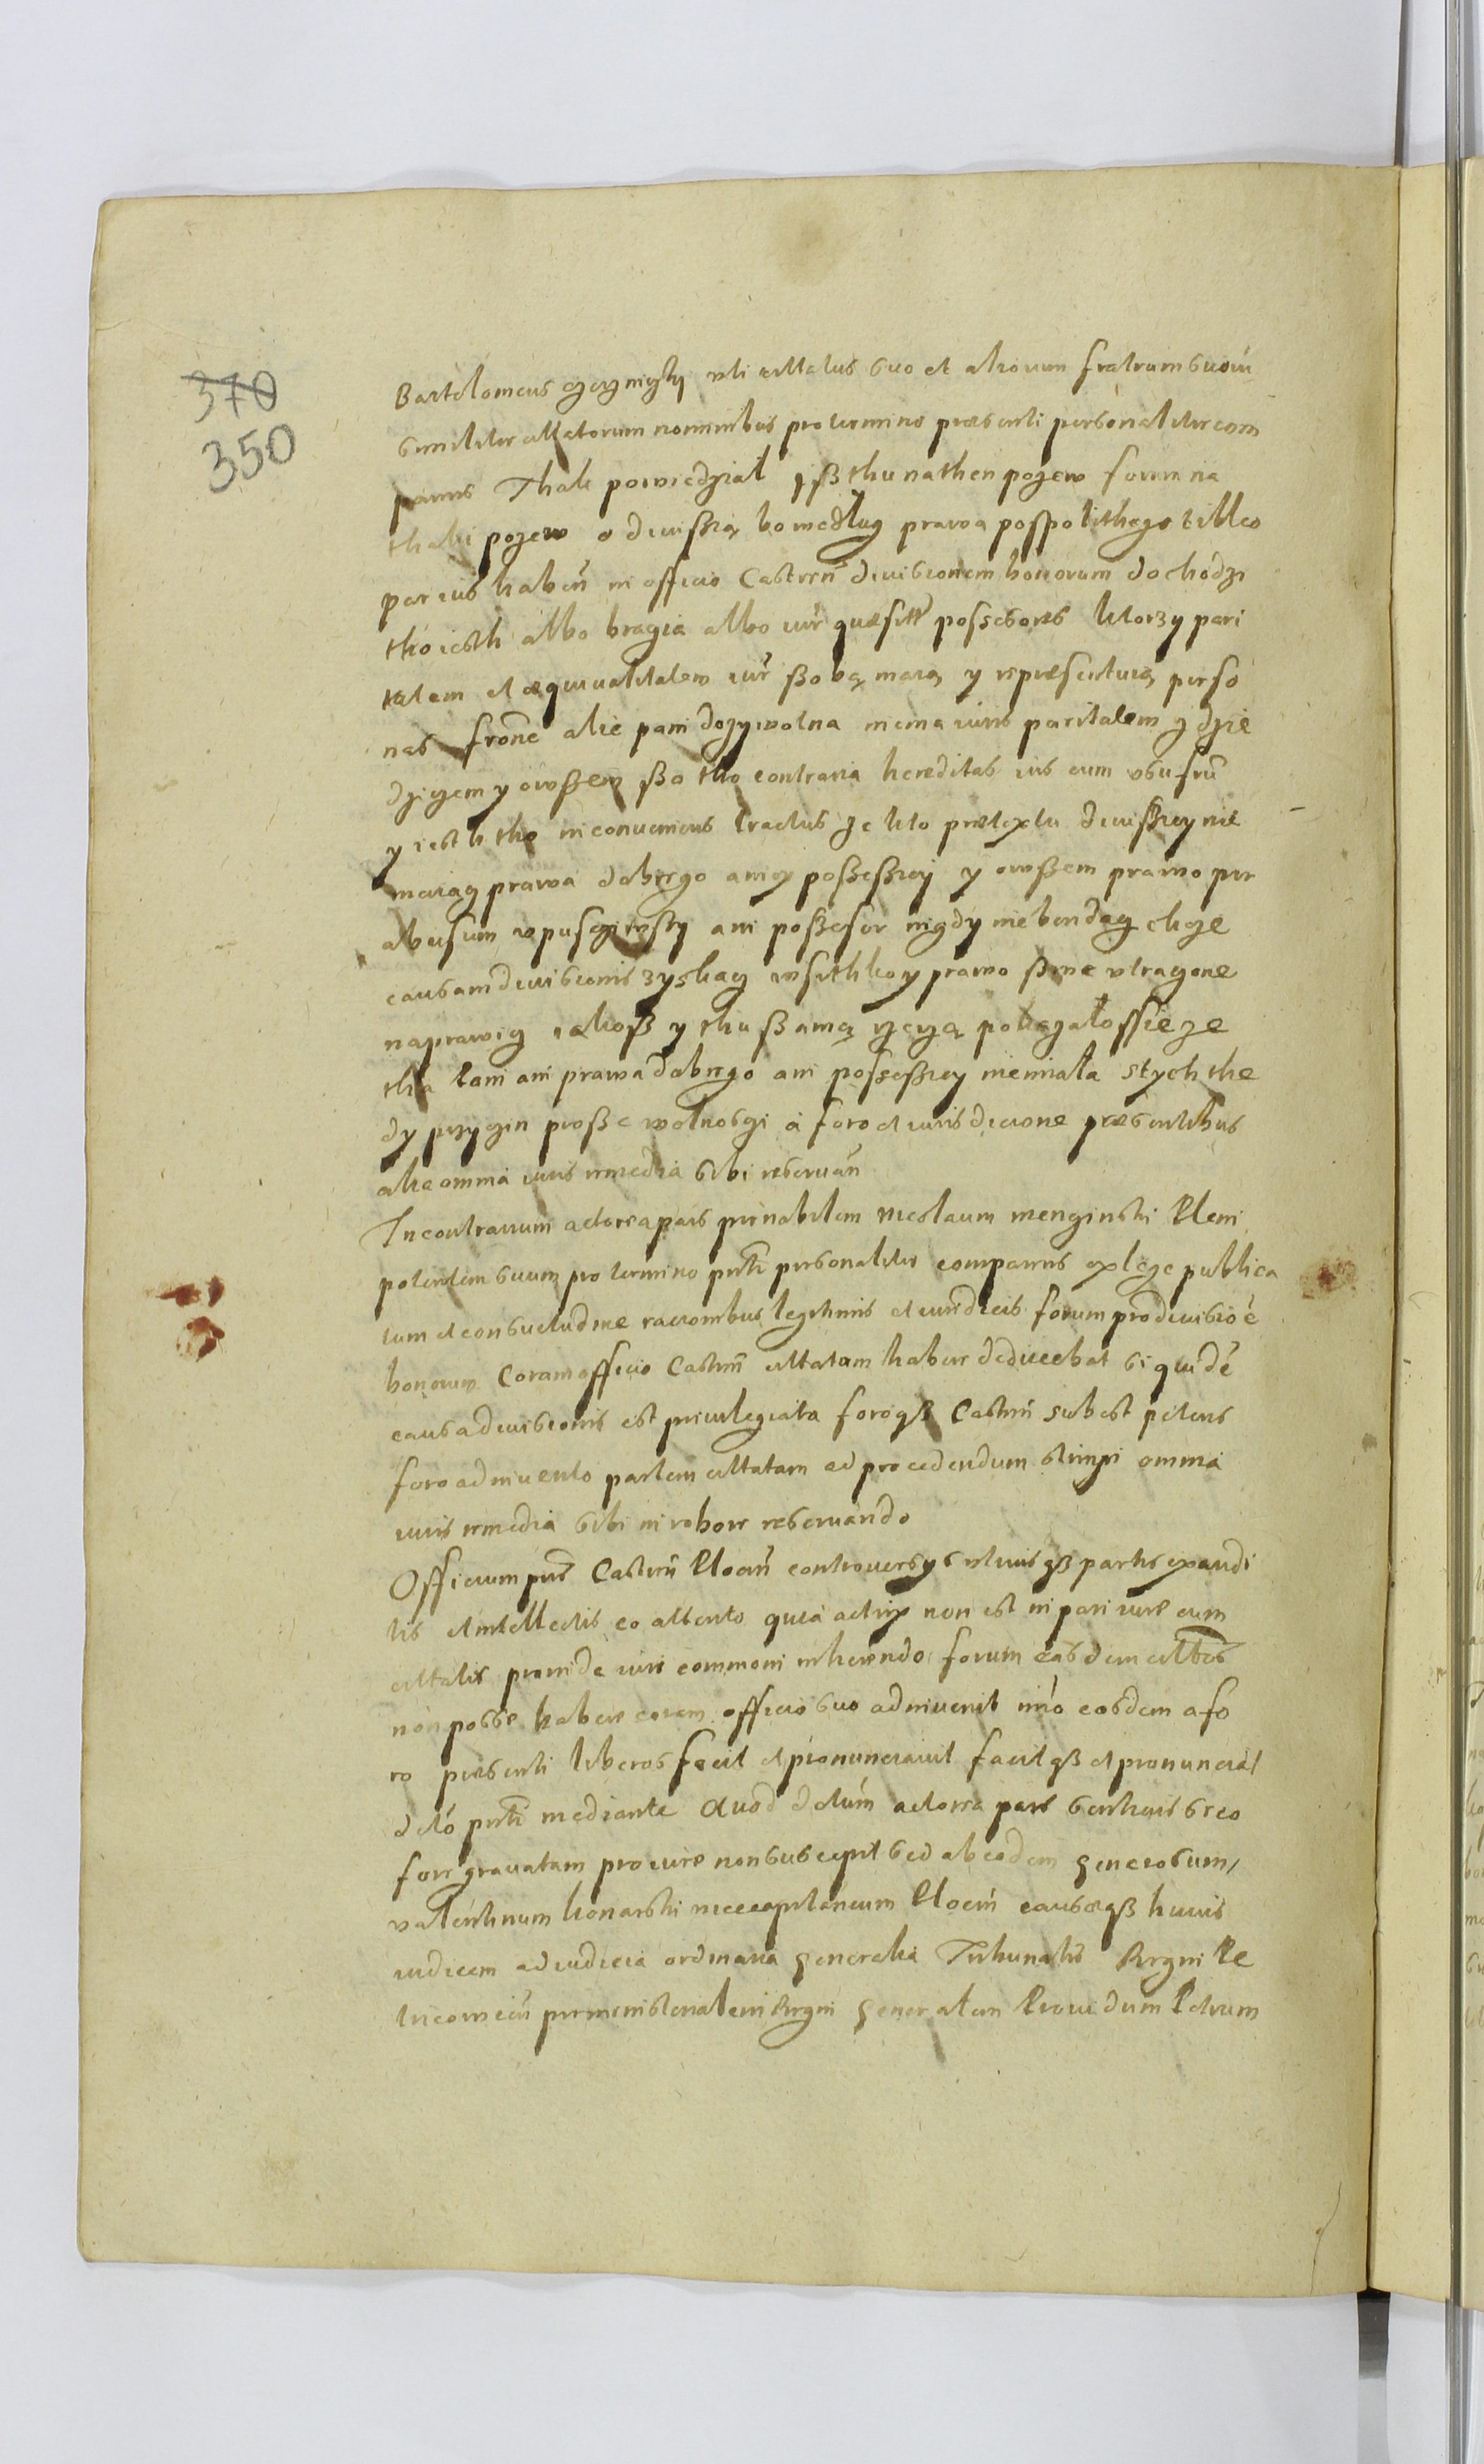 370
350
Bartolomeus uti citatus suo et aliorum fratrum suorū
similiter citatorum nominibus pro termino præsenti personaliter com
parens Thak powiedział yß thu na then pozew forum na
thaki pozew o diuisßią bo wedlug prawa pospolithego tilko
par ius habeñ in officio Castreñ diuisionem bonorum dochodzi
tho iesth albo bragia albo iur̃ quæsitt possesores ktorzy pari
tatem et æquiualitatem iur̃ ßobą maią y repræsentuią perso
nas ale pani dozywotna niema iuris paritatem z dzie
dzicem y owßem ßo tho contraria hereditas ius cum usufrũ
y iesth tho inconueniens tractus ze kto prætextu diuisßiey nie
maiącz prawa dobrego aniy posseßiey y owßem prawo per
abusum ani poßesor nigdy niebendącz chcze
causam diuisionis zyskacz wsithko y prawo ßwe utragone
naprawicz iakoß y thu ßamą rzeczą pokazałossie ze
tha pani ani prawa dobrego ani posseßiey niemiała stych the
dy przyczin proße wolnosczi à foro et iurisdicione præsentibus
alia omnia iuris remedia sibi reseruañ
In contrarium actorea pars per nobilem Nicolaum menginski Pleni
potentem suum pro termino pnti personaliter comparens ex lege publica
tum et consuetudine racionibus legitimis et iuridicis forum pro diuisioe
bonorum Coram officio Castreñ citatam habere deducebat siquidē
causa diuisionis est priuilegiata foroqß Castreñ subest petens
foro adinuento partem citatam ad procedendum stringi omnia
iuris remedia sibi in robore reseruando
Officium pñs Castreñ Plocen̄ controuersys utriusqß partis exaudi
tis et intellectis eo attento quia actrix non est in pari iure cum
citatis proinde iuri communi inherendo forum easdem citatos
non posse habere coram officio suo adinuenit imo eosdem a fo
ro præsenti liberos fecit et pronunciauit facitqß et pronunciat
dcto pnti mediante Quod dctum actorea pars sentiens se eo
fore grauatam pro iure non suscepit sed ab eodem generosum
valentinum konarski vicecapitaneum Plocen̄ causæqß huius
iudicem ad iudicia ordinaria generalia Tribunalis Regni Pe
tricouieñ per ministerialem Regni generalem Prouidum Petrum